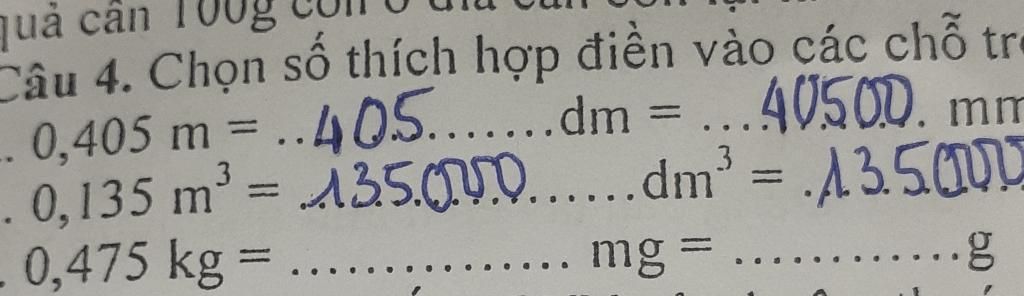 quả cân 100g còn ở đĩa cân còn lại
Câu 4. Chọn số thích hợp điền vào các chỗ
.. 0,405 m = ..405.......dm = ....40500. mm
. 0,135 m³ = .135.000......dm³ = .135000
. 0,475 kg = ............... mg = .............g